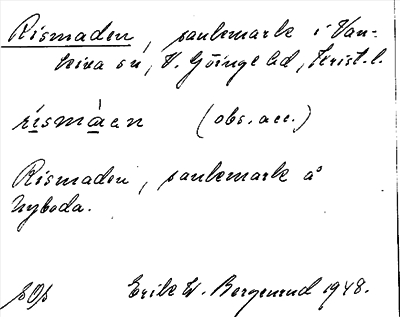 Rismaden, sankmark i Van-
kiva sn, V. Göinge hd, Krist. l.
rismáen (obs. acc.)
Rismaden, sankmark å
Nyboda.
Erik W. Bergenrud 1948.